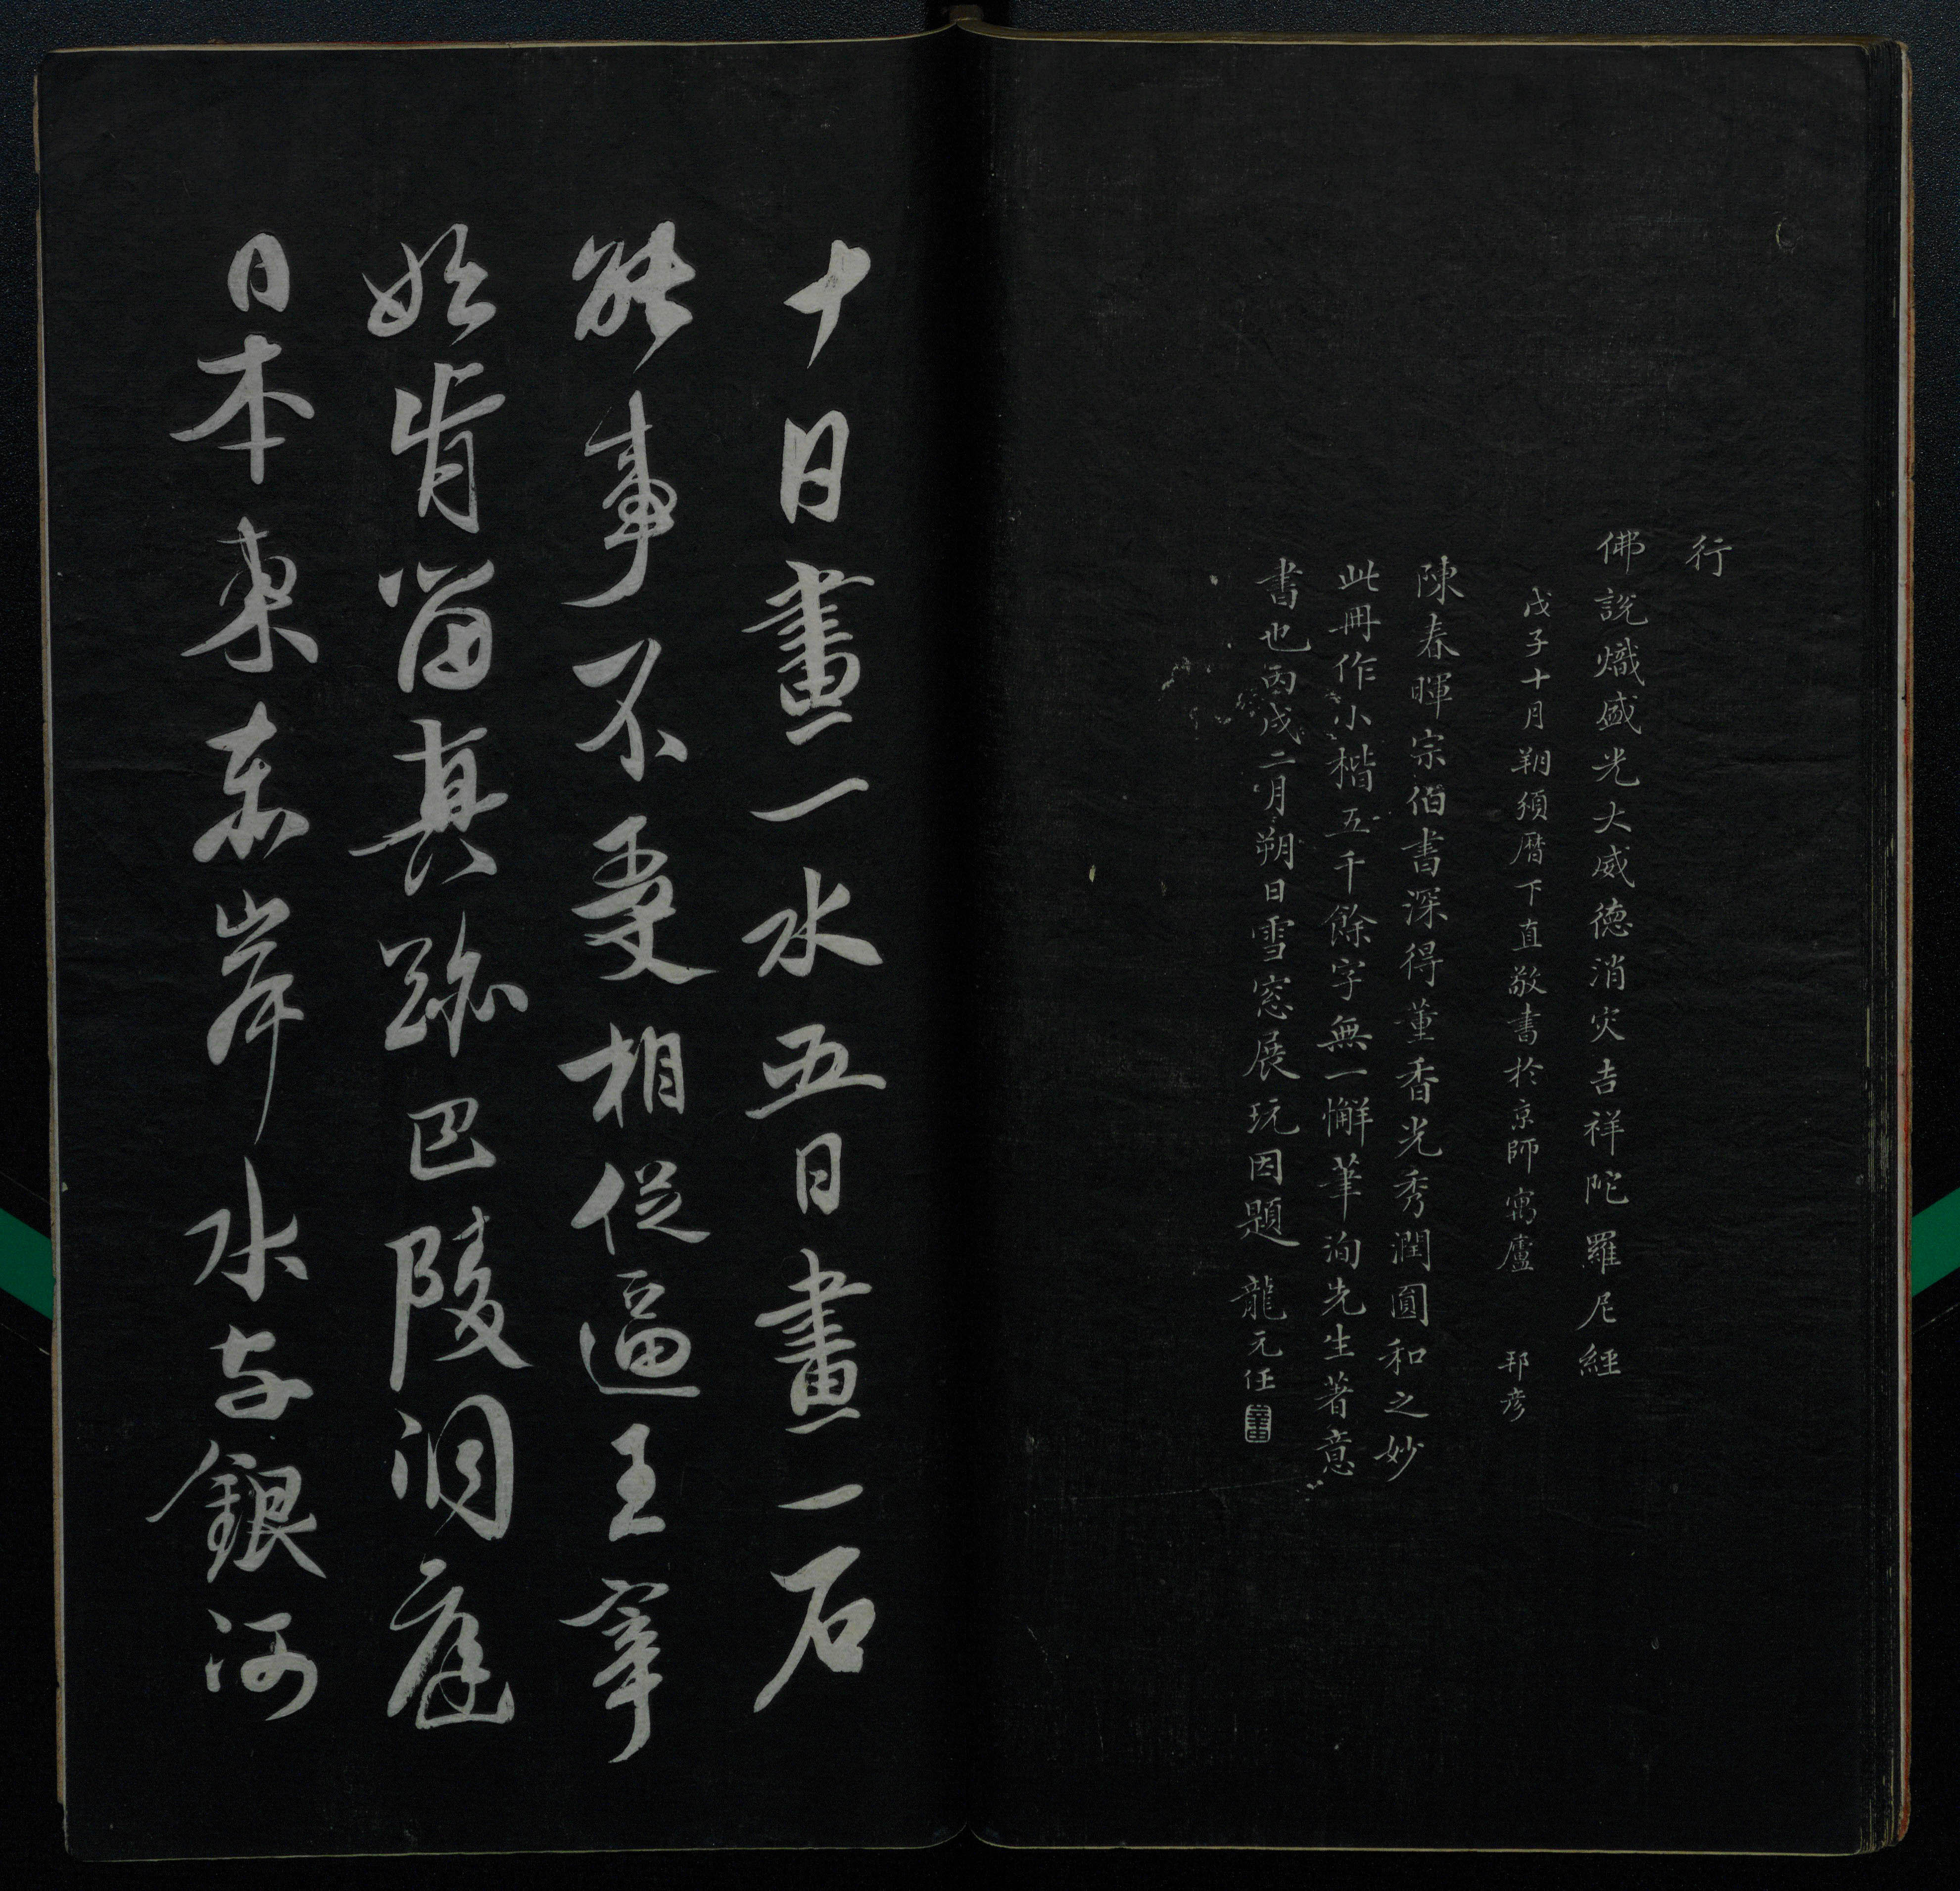 行
佛說熾盛光大威德消灾吉祥陀羅尼經
戊子十月朔須曆下直敬書於京師寓廬 邦彦
陳春暉宗伯書深得董香光秀潤圓和之妙
此冊作小楷五千餘字無一懈筆洵先生著意
書也丙戌二月朔日雪窓展玩因題 龍元任
十日畫一水五日畫一石
能事不受相促逼王宰
始肯留真跡巴陵洞庭
日本東赤岸水与銀河